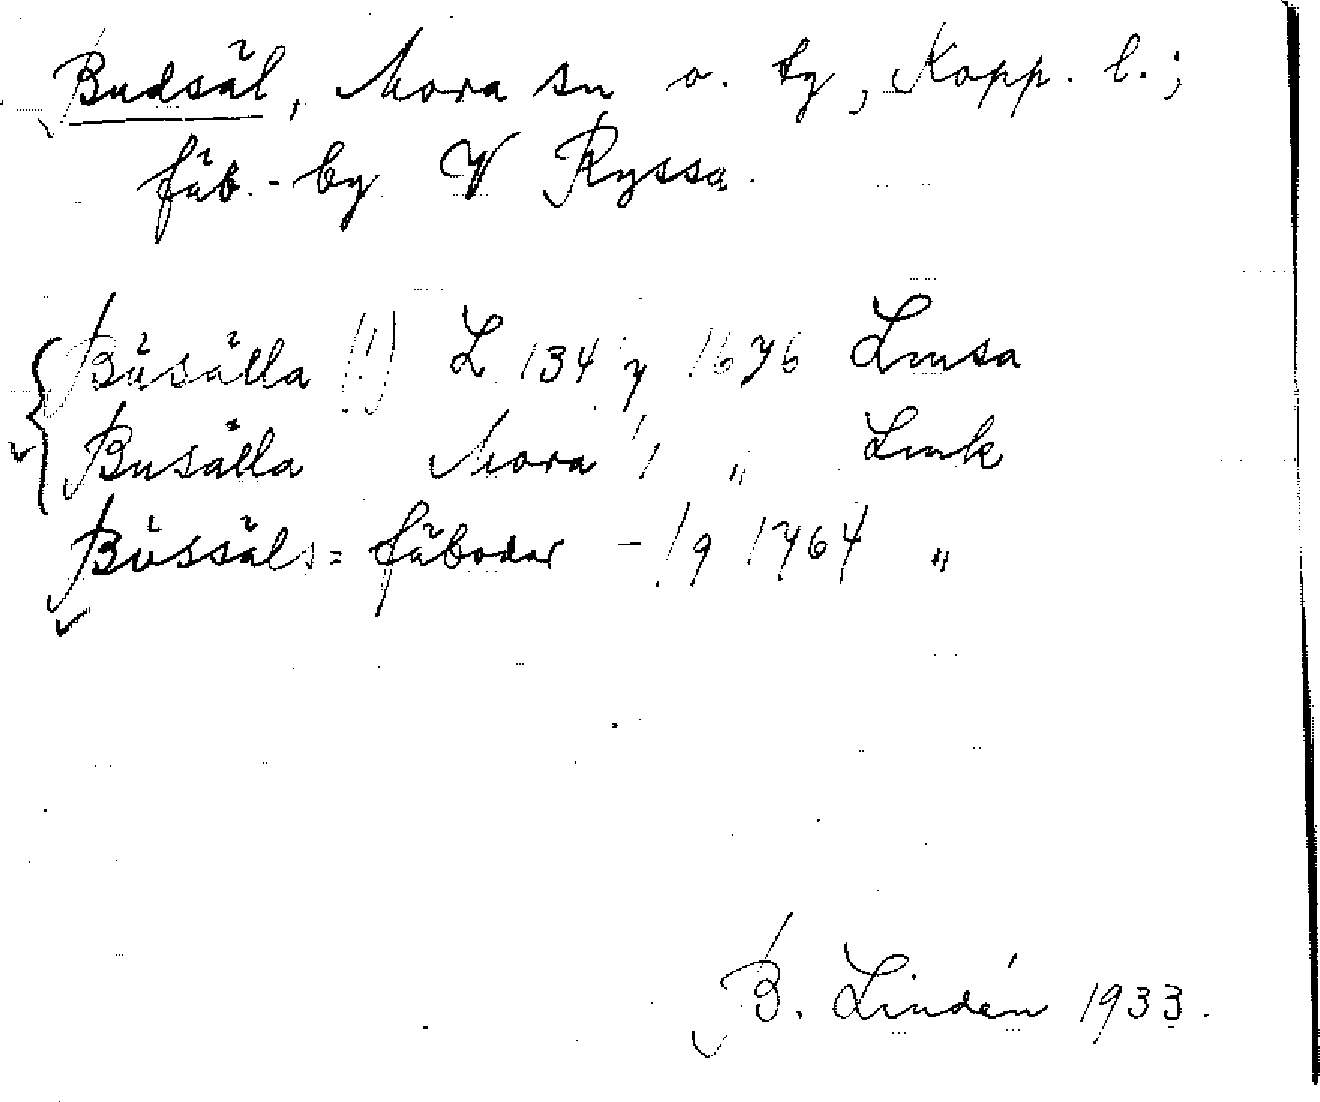 Budsäl, Mora sn o. tg, Kopp. l.;
fäb.-by V Ryssa.
Busälla (!) L 134 y 1676 Lmsa
Busälla Mora 1/1 " Lmk
Bussäls= fäbodar - 1/9 1764 "
B. Lindén 1933.